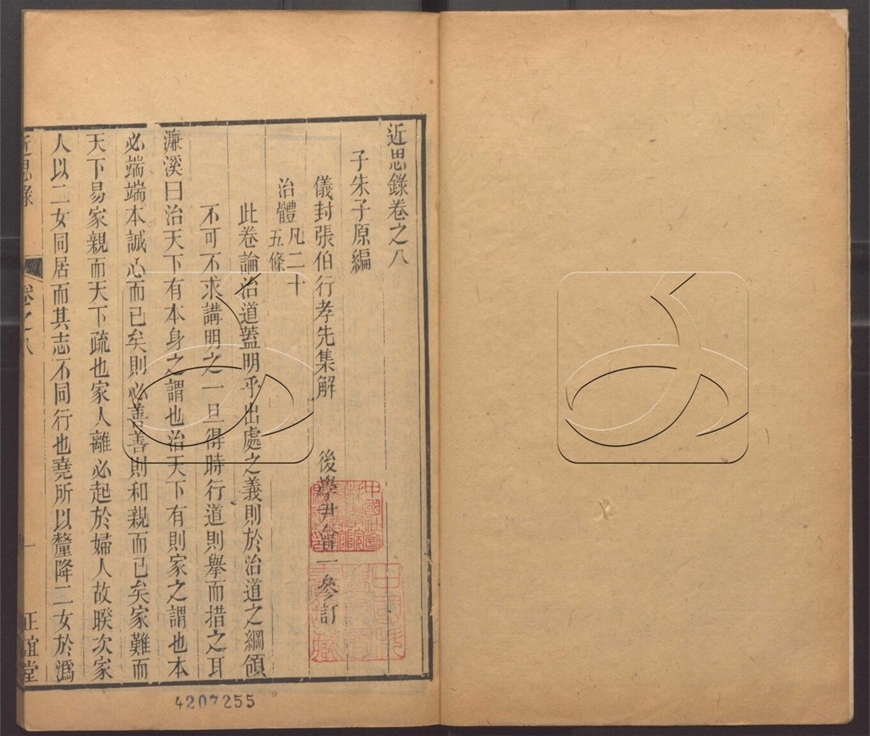 近思錄卷之八
子朱子原編
儀封張伯行孝先集解　後學尹會一參訂
治體凡二十五條
此卷論治道蓋明乎出處之義則於治道之綱領
不可不求講明之一旦得時行道則舉而措之耳
濂溪曰治天下有本身之謂也治天下有則家之謂也本
必端端本誠心而已矣則必善善則和親而已矣家難而
天下易家親而天下疏也家人離必起於婦人故睽次家
人以二女同居而其志不同行也堯所以釐降二女於溈
近思錄　卷之八　一　正誼堂
4207255